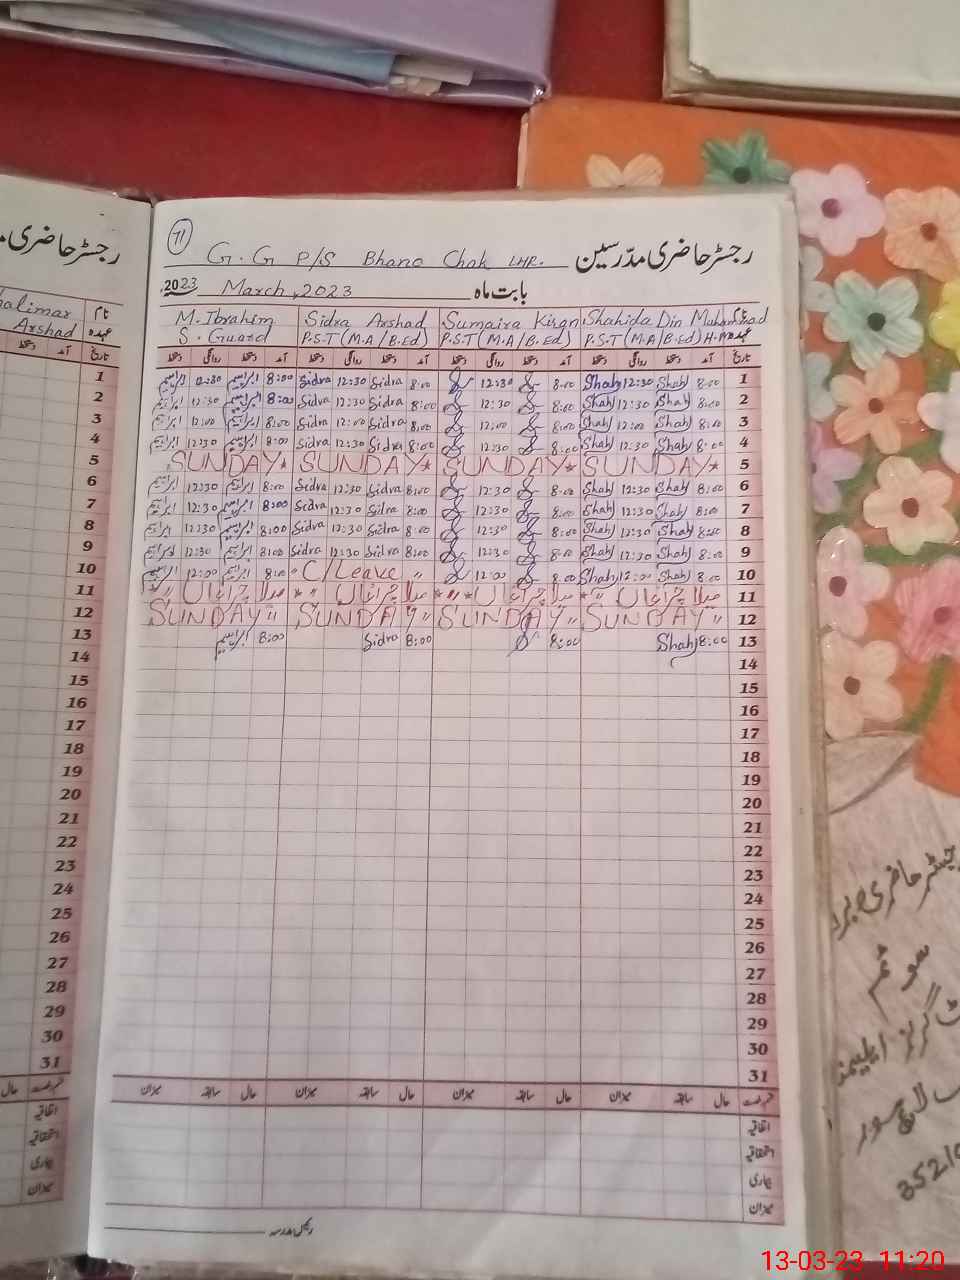 71
G.G P/S Bhano Chak LHR. رجسٹر حاضری مدّرسین
2023 March, 2023 بابت ماہ
M. Ibrahim Sidra Arshad Sumaira Kiran Shahida Din Muhammad نام
S. Guard P.S.T (M.A/B.Ed) P.S.T (M.A/B.Ed) P.S.T (M.A/B.Ed) H.M عہدہ
دستخط روانگی دستخط آمد دستخط روانگی دستخط آمد دستخط روانگی دستخط آمد دستخط روانگی دستخط آمد تاریخ
ابراہیم 12:30 ابراہیم 8:00 Sidra 12:30 Sidra 8:00 12:30 8:00 Shah 12:30 Shah 8:00 1
ابراہیم 12:30 ابراہیم 8:00 Sidra 12:30 Sidra 8:00 12:30 8:00 Shah 12:30 Shah 8:00 2
ابراہیم 12:00 ابراہیم 8:00 Sidra 12:00 Sidra 8:00 12:00 8:00 Shah 12:00 Shah 8:00 3
ابراہیم 12:30 ابراہیم 8:00 Sidra 12:30 Sidra 8:00 12:30 8:00 Shah 12:30 Shah 8:00 4
SUNDAY* SUNDAY* SUNDAY* SUNDAY* 5
ابراہیم 12:30 ابراہیم 8:00 Sidra 12:30 Sidra 8:00 12:30 8:00 Shah 12:30 Shah 8:00 6
ابراہیم 12:30 ابراہیم 8:00 Sidra 12:30 Sidra 8:00 12:30 8:00 Shah 12:30 Shah 8:00 7
ابراہیم 12:30 ابراہیم 8:00 Sidra 12:30 Sidra 8:00 12:30 8:00 Shah 12:30 Shah 8:00 8
ابراہیم 12:30 ابراہیم 8:00 Sidra 12:30 Sidra 8:00 12:30 8:00 Shah 12:30 Shah 8:00 9
ابراہیم 12:00 ابراہیم 8:00 " C/Leave " 12:00 8:00 Shah 12:00 Shah 8:00 10
میلا چراغاں میلا چراغاں میلا چراغاں میلا چراغاں 11
SUNDAY " SUNDAY " SUNDAY " SUNDAY " 12
ابراہیم 8:00 Sidra 8:00 8:00 Shah 8:00 13
14
15
16
17
18
19
20
21
22
23
24
25
26
27
28
29
30
31
میزان سابقہ حال میزان سابقہ حال میزان سابقہ حال میزان سابقہ حال قسم رخصت
اتفاقیہ
استحقاقیہ
بیماری
میزان
رئیس مدرسہ
رجسٹر حاضری
Shalimar نام
Arshad عہدہ
دستخط آمد تاریخ
1
2
3
4
5
6
7
8
9
10
11
12
13
14
15
16
17
18
19
20
21
22
23
24
25
26
27
28
29
30
31
حال قسم رخصت
اتفاقیہ
استحقاقیہ
بیماری
میزان
رجسٹر حاضری
گرلز
3521
13-03-23 11:20